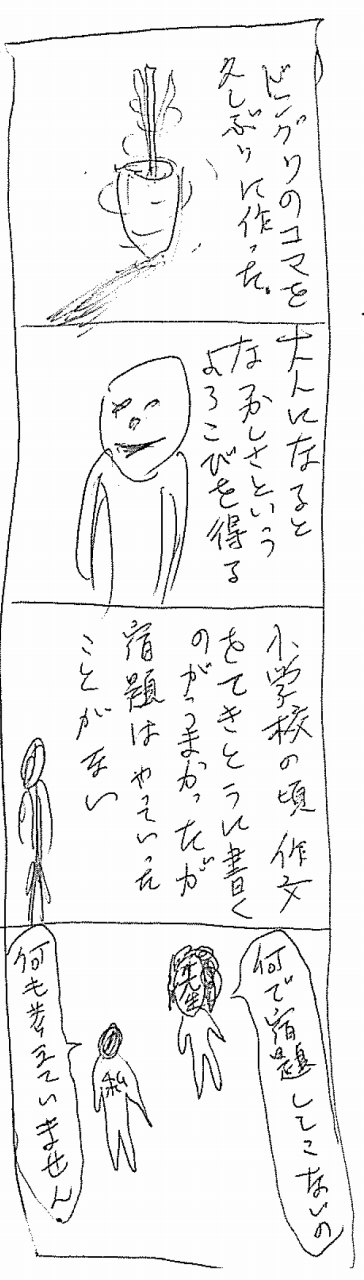 ドングリのコマを
久しぶりに作った。
大人になると
なつかしさという
よろこびを得る
小学校の頃 作文
をてきとうに書く
のがうまかったが
宿題はやっていった
ことがない
何で宿題してこないの
先生
私
何も考えていません。